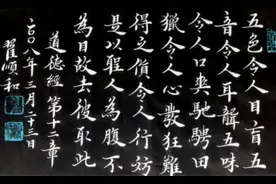 五色令人目盲五
音令人耳聾五味
令人口爽馳騁田
獵令人心發狂難
得之貨令人行妨
是以聖人為腹不
為目故去彼取此
道德經第十二章
二〇〇八年三月二十三日
翟順和